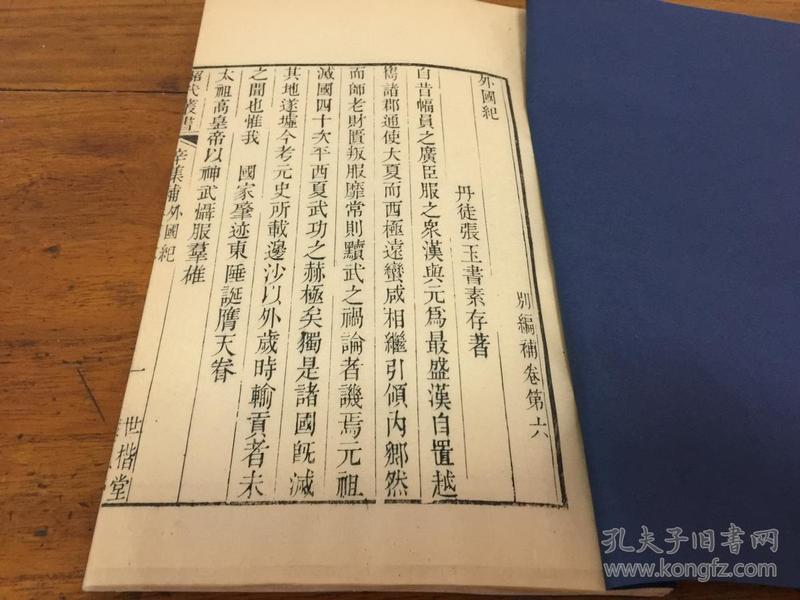 外國紀
別編補卷第六
丹徒張玉書素存著
自昔幅員之廣臣服之衆漢與元爲最盛漢自置越
嶲諸郡通使大夏而西極遠蠻咸相繼引領內鄉然
而師老財匱叛服靡常則黷武之禍論者譏焉元祖
滅國四十次平西夏武功之赫極矣獨是諸國旣滅
其地遂墟今考元史所載邊沙以外歲時輸貢者未
之聞也惟我 國家肇迹東陲誕膺天眷
太祖高皇帝以神武懾服羣雄
昭代叢書
辛集補外國紀
一
世楷堂
孔夫子旧书网
www.kongfz.com